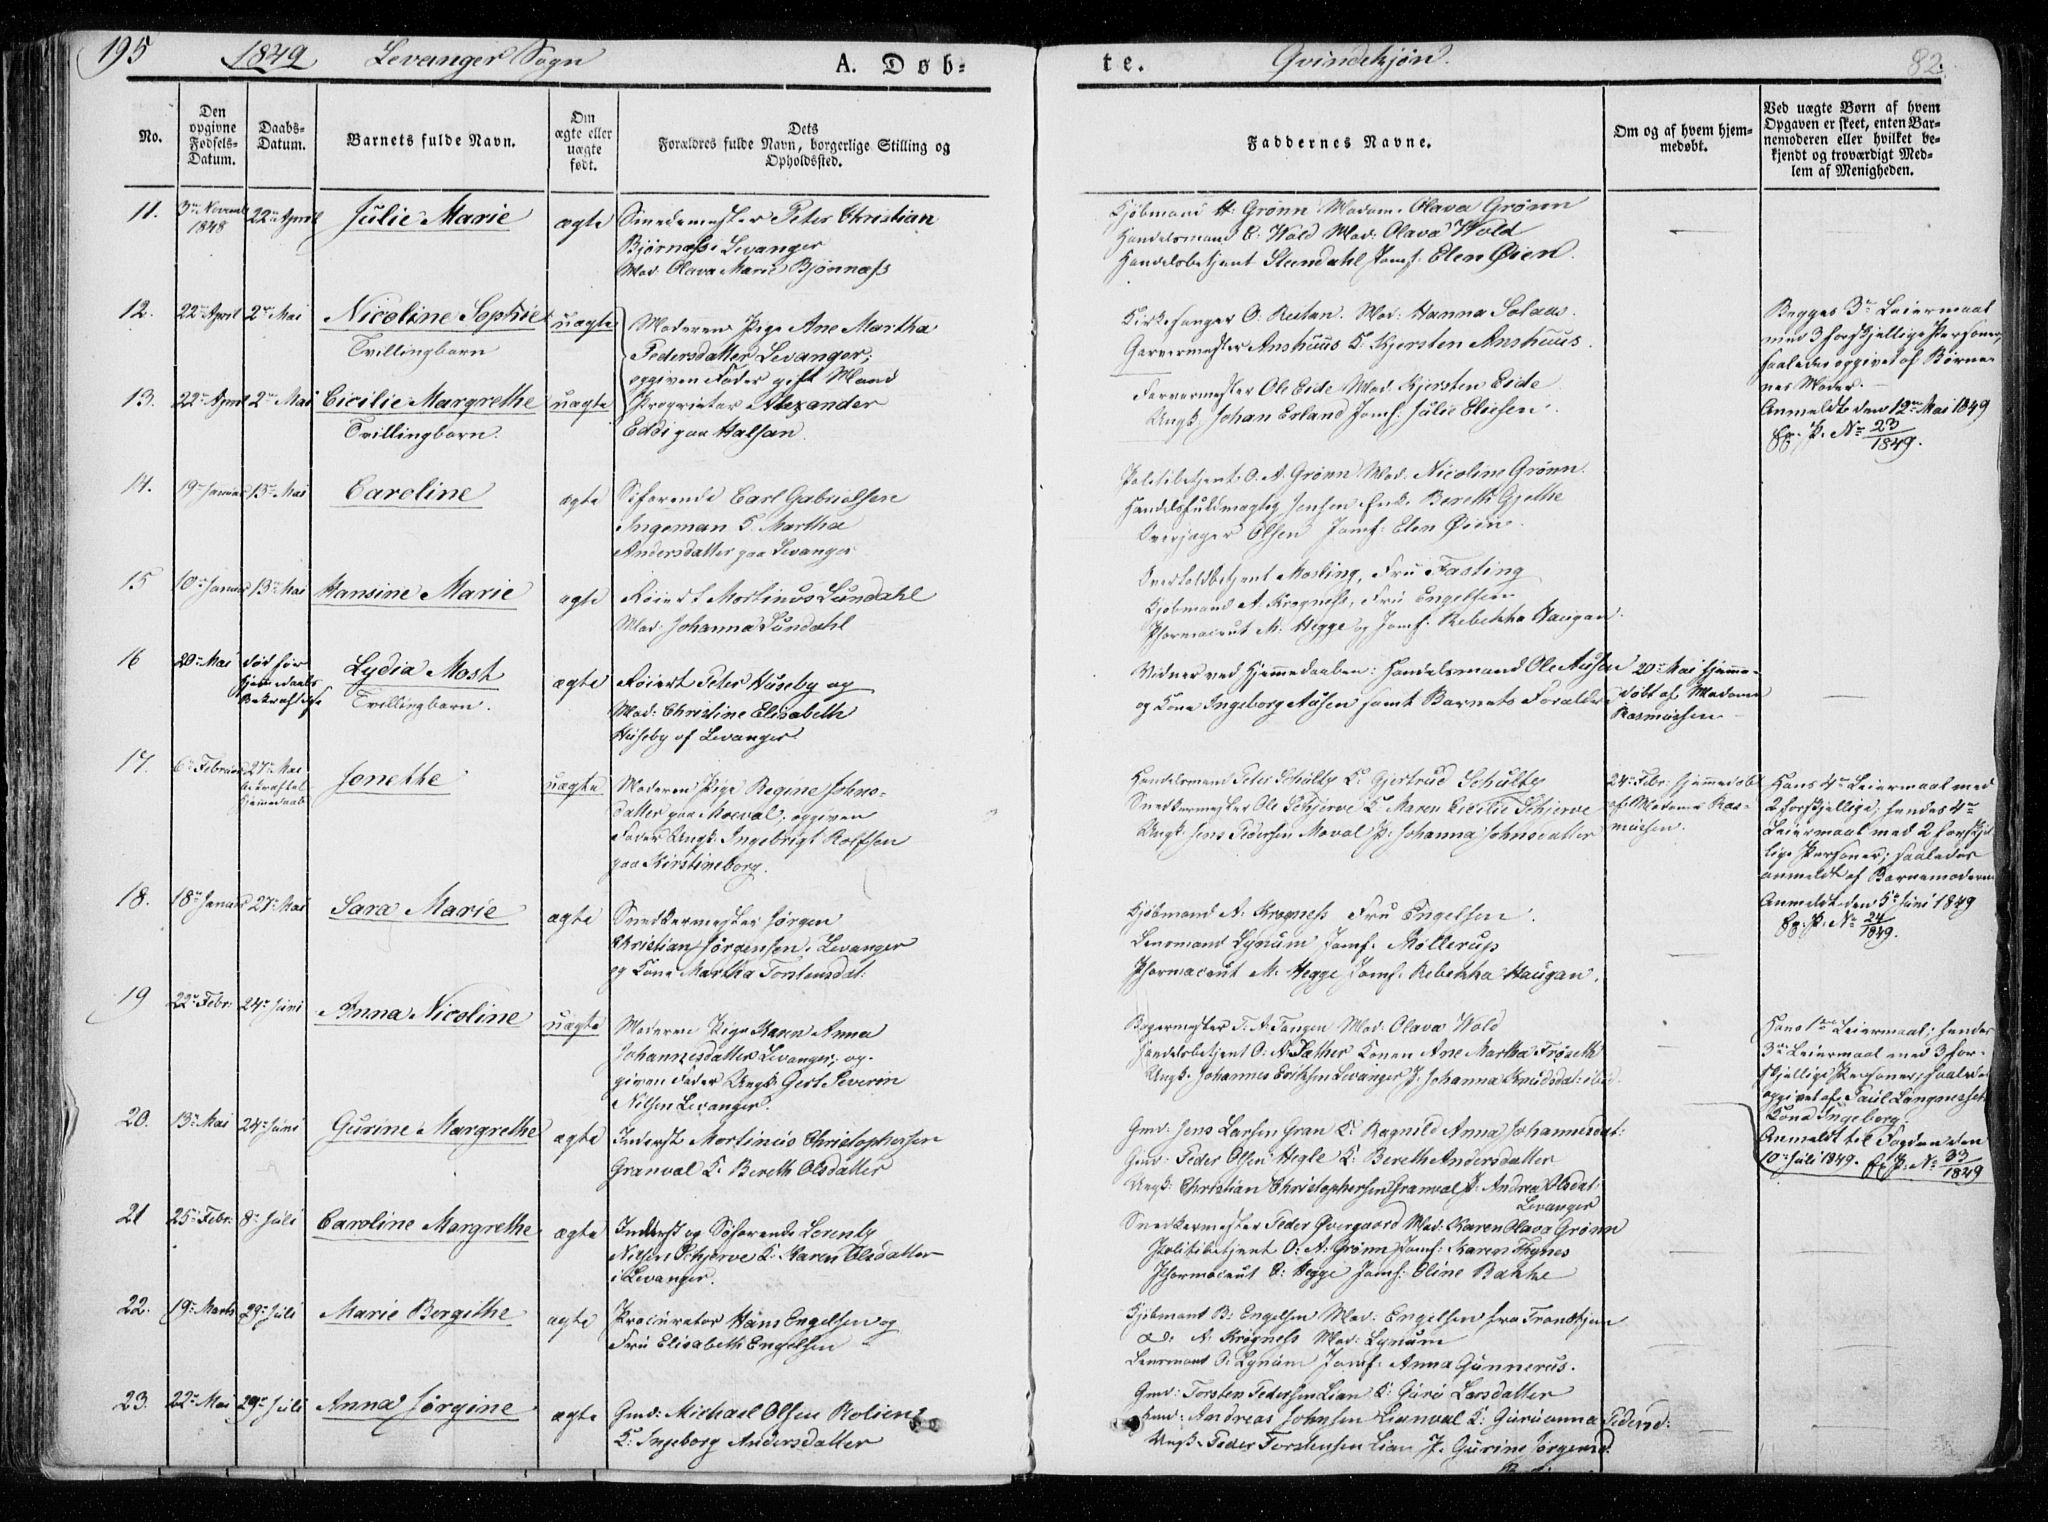 195 1849 Levanger Sogn A. Døb-
te. Qvindekjøn. 82.
No.
Den opgivne Fødsels-Datum.
Daabs-Datum.
Barnets fulde Navn.
Om ægte eller uægte født.
Dets Forældres fulde Navn, borgerlige Stilling og Opholdssted.
Faddernes Navne.
Om og af hvem hjem-
medøbt.
Ved uægte Børn af hvem
Opgaven er skeet, enten Bar-
nemoderen eller hvilket be-
kjendt og troværdigt Med-
lem af Menigheden.
11. 3die Novemb 1848 22de April Julie Marie ægte
Smedemester Peter Christian
Bjørnæss Levanger
Mad. Olava Marie Bjönnæss
Kjöbmand H. Grönn Madam Olava Grönn
Handelsmand C. Wold Mad: Olava Wold
Handelsbetjent Steendahl Jomf. Elen Øien.
12. 22de April 2den Mai Nicoline Sophie uægte
Tvillingbarn
Moderen Pige Ane Martha
Pedersdatter Levanger;
opgiven Fader gift Mand
Kirkesanger O. Reitan. Mad: Hanna Solaas.
Garvermester Anshuus K. Kjersten Anshuus.
Begges 3de Leiermaal
med 3 forskjellige Personer,
saaledes opgivet af Børne-
nes Moder.
Anmeldt den 12te Mai 1849
Cfr. P. No 23/1849.
13. 22de April 2den Mai Cicilie Margrethe uægte
Tvillingbarn.
Proprietær Alexander
Eddi paa Halsan.
Farvermester Ole Eide Mad. Kjersten Eide
Ungk. Johan Erland Jomf: Julie Eliesen.
14. 19de Januar 13de Mai Caroline ægte
Søfarende Carl Gabrielsen
Ingeman K. Martha
Andersdatter paa Levanger
Politibetjent O. A. Grönn Mad. Nicoline Grönn.
Handelsfuldmægtig Jensen Enke Bereth Gjethe
Overjæger Olsen Jomf: Elen Øien.
15 10de Januar 13de Mai Hansine Marie ægte
Røiert Mortinus Sundahl
Mad: Johanna Sundahl
Overtoldbetjent Mosling, Fru Fasting
Kjöbmand A. Krogness, Fru Engelsen
Pharmaceut M. Hegge og Jomf. Rebekka Haugan.
16 20de Mai død før Hjemmedaabs Bekræftelse Lydia Most ægte
Tvillingbarn.
Røiert Peter Huseby og
Mad: Christine Elisabeth
Huseby af Levanger.
Vidner ved Hjemmedaaben: Handelsmand Ole Ausen
og Kone Ingeborg Ausen samt Barnets Forældre
20de Mai hjemme-
døbt af Madame
Rasmussen
17. 6te Februar 27de Mai bekræftet Hjemmedaab Jonette uægte
Moderen Pige Regine Johns-
datter paa Moeval, opgiven
Fader Ungk. Ingebrigt Rolfsen
paa Kirstineborg.
Handelsmand Peter Schultz K. Gjertrud Schultz
Snedkermester Ole Schjerve K. Maren Cecilie Schjerve
Ungk. Jens Pedersen Moval P. Johanna Johnsdatter
24de Febr. hjemmedøbt
af Madame Ras-
mussen.
Hans 4de Leiermaal med
2 forskjellige; hendes 4de
Leiermaal med 2 forskjel-
lige Personer; saaledes
anmeldt af Barnemoderen
Anmeldt den 5te Juni 1849
Cfr. P. No 24/1849.
18. 18de Januar 27de Mai Sara Marie ægte
Snedkermester Jørgen
Christian Jørgensen, Levanger
og Kone Martha Torstensdat:
Kjöbmand A. Krogness Fru Engelsen.
Lensmand Lynum Jomf. Möllerup
Pharmaceut M. Hegge Jomf. Rebekka Haugan.
19 22de Febr: 24de Juni Anna Nicoline uægte
Moderen Pige Karen Anna
Johannesdatter Levanger; op-
given Fader Ungk. Gert Severin
Nilsen Levanger.
Bagermester T. A. Tangen Mad. Olava Wold
Handelsbetjent O. N. Sæther Konen Ane Martha Fröseth
Ungk. Johannes Eriksen Levanger P. Johanna Knudsdat:
Hans 1ste Leiermaal; hendes
3die Leiermaal med 3 for-
skjellige Personer; saaledes
opgivet af Paul Langnesses
Kone Ingeborg.
Anmeldt til Fogden den
10de Juli 1849. Cfr. P. No 33/1849
20. 13de Mai 24de Juni Gurine Margrethe ægte
Inderst Mortinus Christophersen
Granval K. Bereth Olsdatter
Gmd: Jens Larsen Gran K. Ragnild Anna Johannesdat:
Gmd: Peder Olsen Hegle K. Bereth Andersdatter
Ungk: Christian Christophersen Granval P. Andrea Olsdat:
Levanger
21 25de Febr. 8de Juli Caroline Margrethe ægte
Inderst og Søfarende Lorentz
Nilsen Schjerve K. Karen Olsdatter
i Levanger.
Snedkermester Peder Overgaard Mad: Karen Olava Grönn
Politibetjent O. A. Grönn Jomf: Karen Thynes
Pharmaceut C. Hegge Jomf: Oline Bakke
22. 19de Marts 29de Juli Marie Bergithe ægte
Procurator Hans Engelsen og
Fru Elisabeth Engelsen
Kjöbmand B. Engelsen Mad: Engelsen fra Trondhjem
do. A. Krogness Mad: Lynum
Lensmand O. Lynum Jomf: Anna Gunnerus.
23. 22de Mai 29de Juli Anna Jørgine ægte
Gmd: Michael Olsen Rolien
K. Ingeborg Andersdatter
Gmd: Torsten Pedersen Lian K. Guru Larsdatter
Gmd: Andreas Johnsen Lianval K. Guruanna Pedersd:
Ungk. Peder Torstensen Lian P. Gurine Jørgensd.